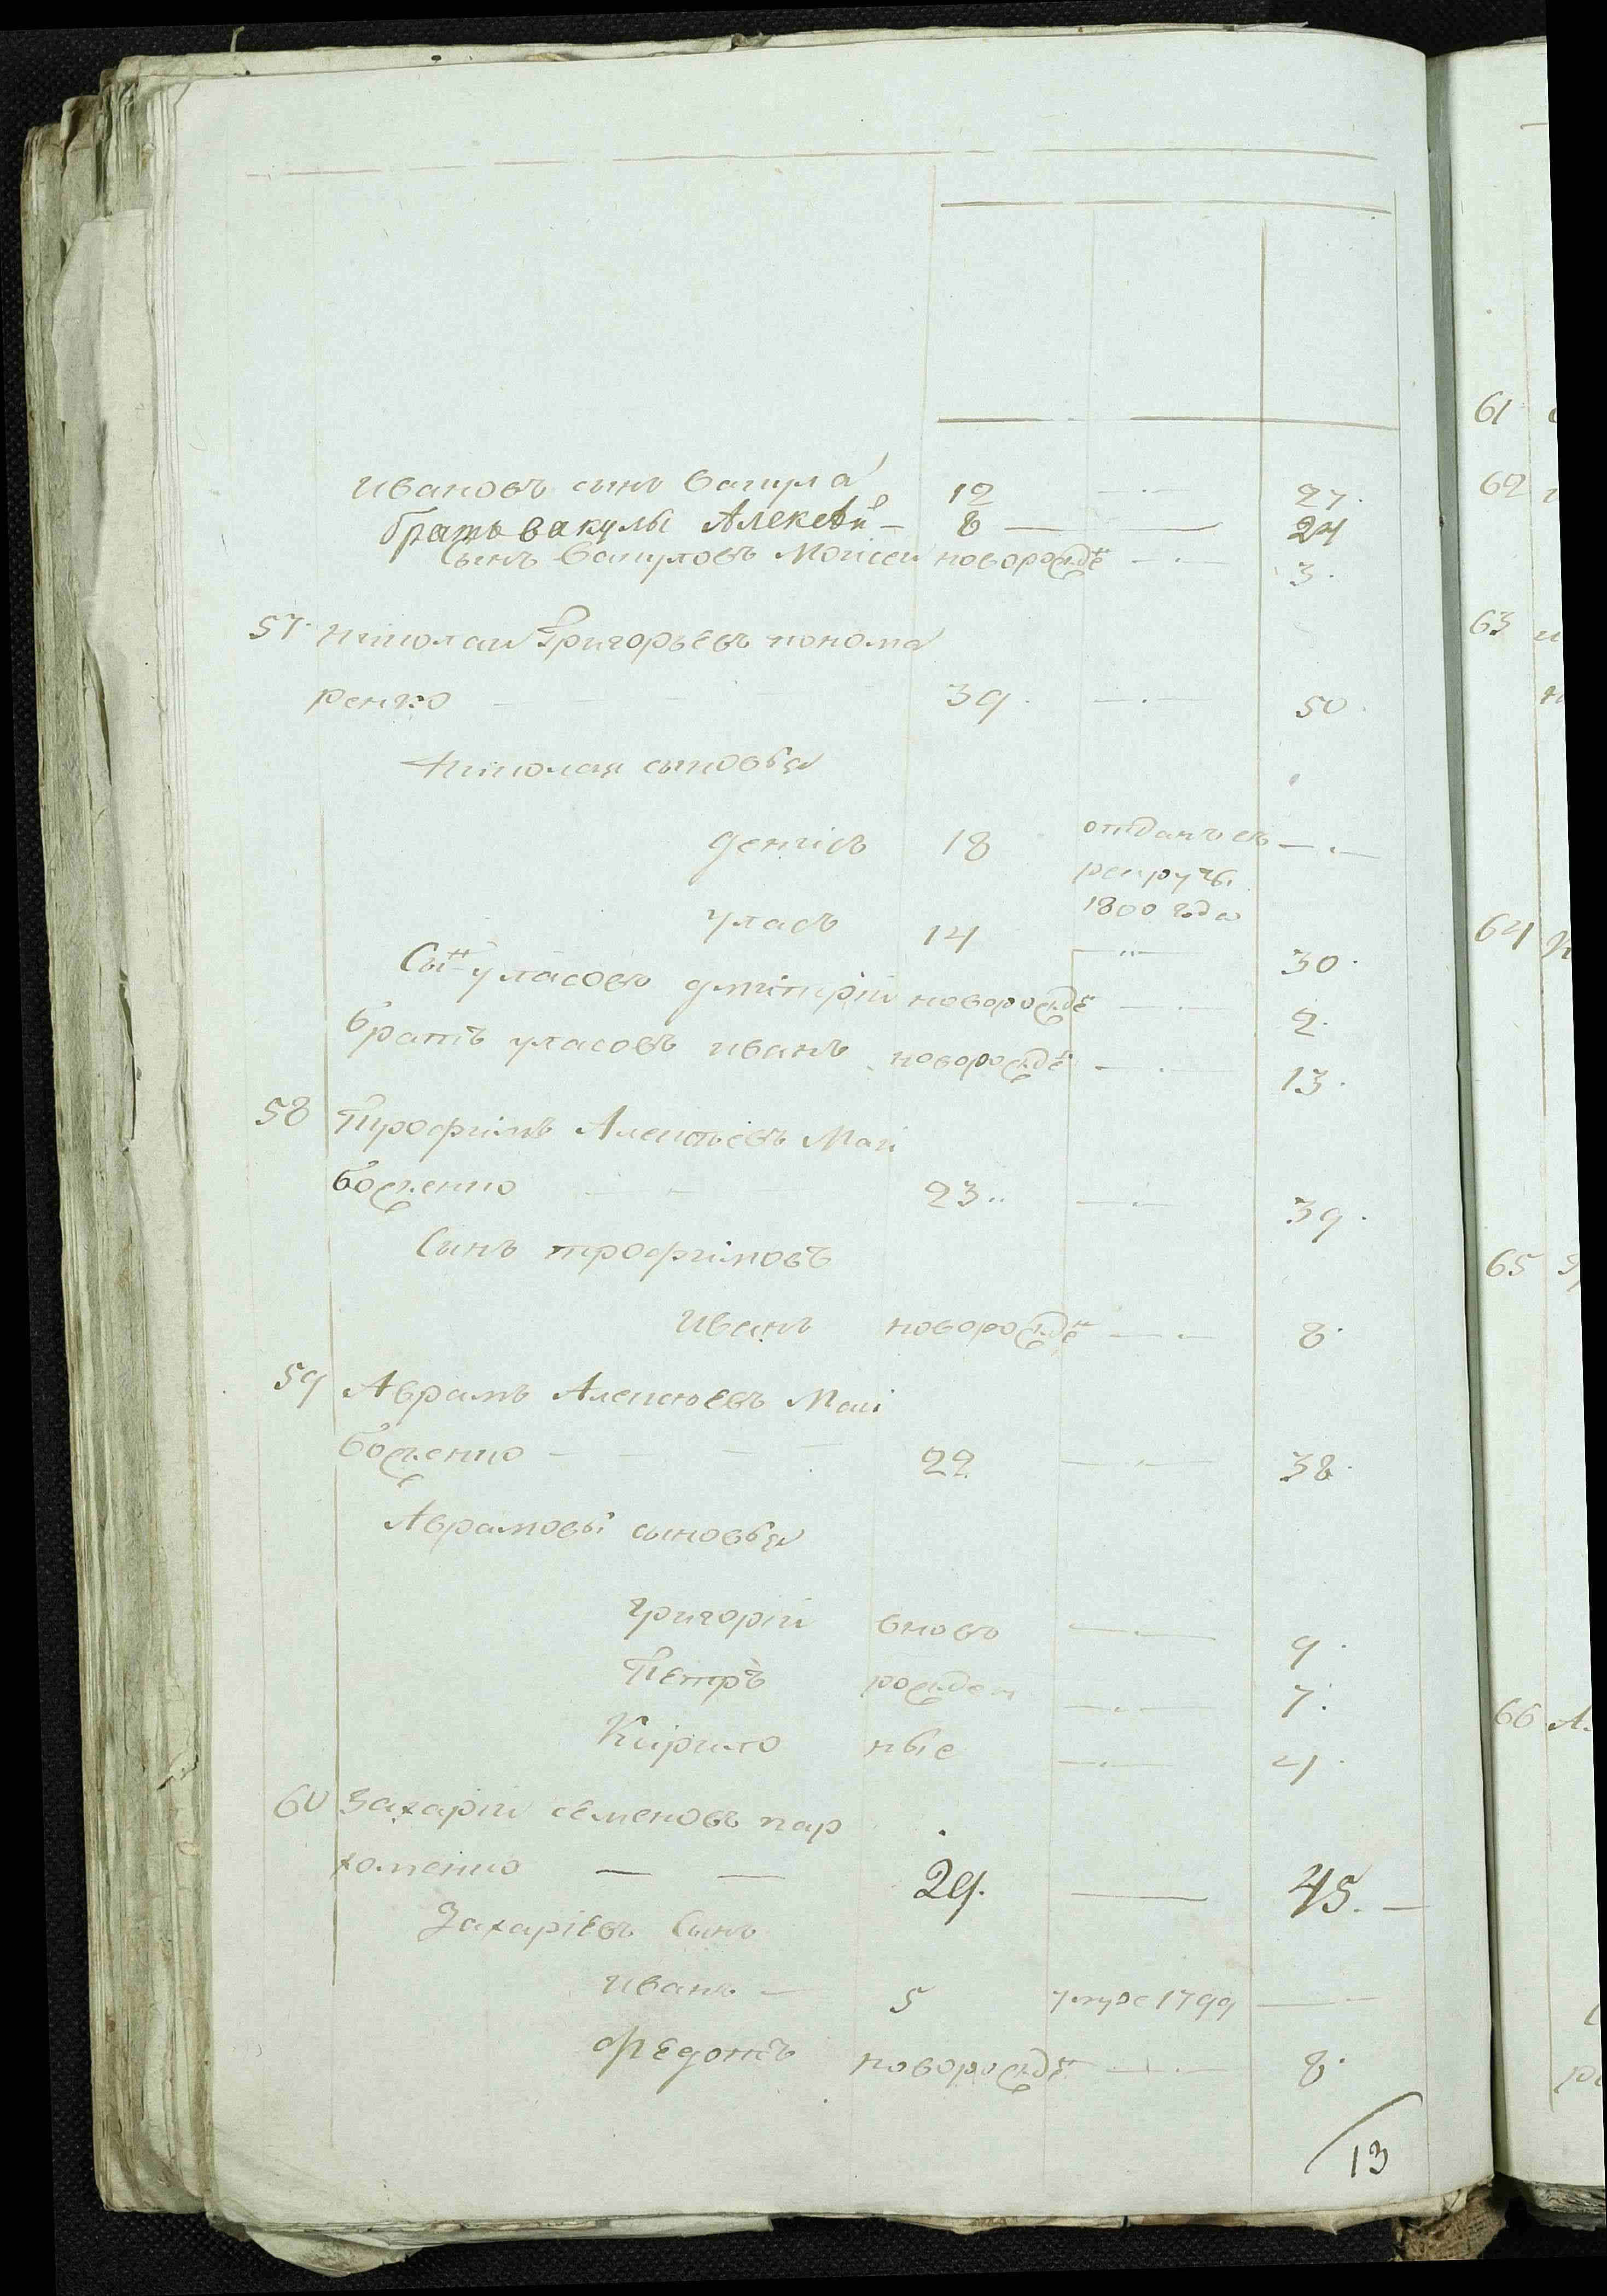 Ивановъ сынъ Вакула 12 — · — 27.
братъ вакулы Алексѣй — 8 — — 24
Сынъ Вакуловъ Моисеи новорожден — · — 3.
57. Николаи Григорьевъ понома
ренко — — 39. — · — 50.
Николая сыновья
денисъ 18 отданъ въ — · —
рекруты
1800 года
уласъ 14 — " — 30.
Сын уласовъ дмітирій новорожден — · — 2.
братъ уласовъ иванъ новорожден — · — 13.
58 Трофимъ Алексѣевъ Май
боженко — — — 23.. — · — 39.
Сынъ трофимовъ
Иванъ новорожден — · — 8.
59 Аврамъ Алексѣевъ Май
боженко — — — — 22 — · — 38.
Аврамовы сыновья
григорій вново — · — 9.
Петръ рожден — · — 7.
Кирило ные — · — 4.
60 Захарій семеновъ пар
хоменко — — 29. — 45. —
Захаріевъ Сынъ
Иванъ — 5 умре 1799 — —
федотъ новорожден — · — 8.
13
61
62
63
64
65
66 А.